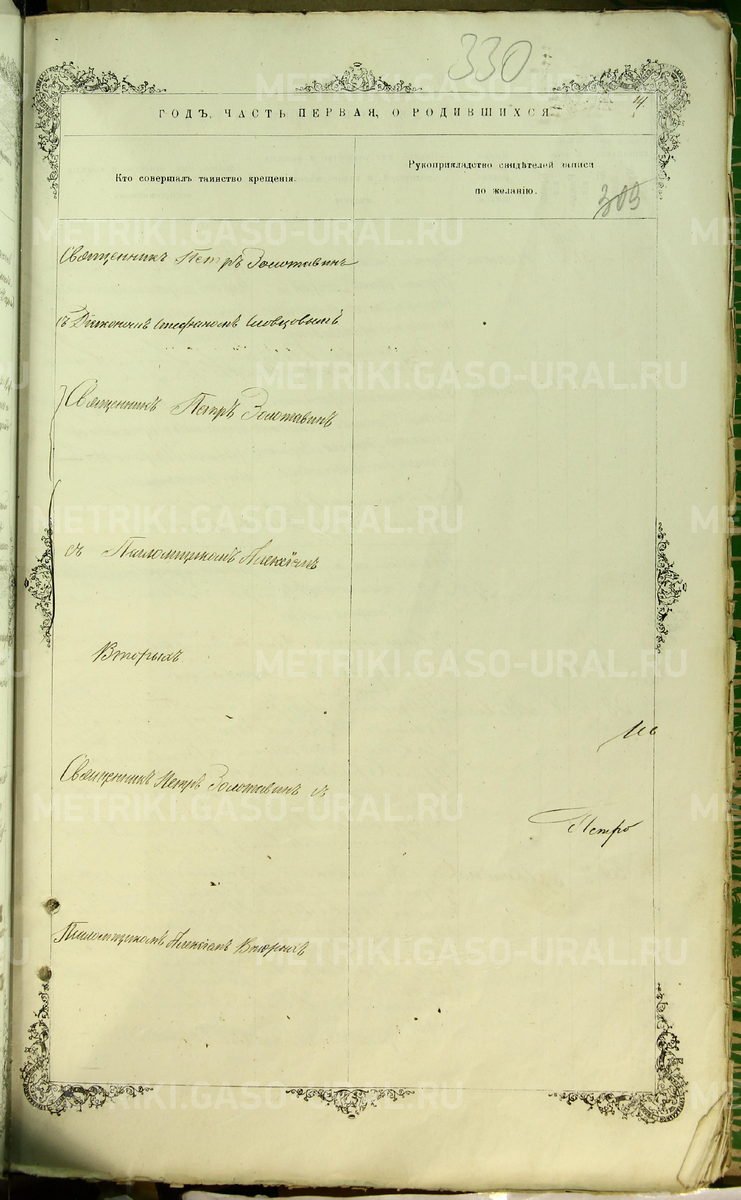 330
ГОДЪ, ЧАСТЬ ПЕРВАЯ, О РОДИВШИХСЯ
Кто совершалъ таинство крещенія.
Рукоприкладство свидѣтелей записи
по желанію.
309
Священникъ Петръ Золотавинъ
съ Діакономъ Стефаномъ Словцовымъ
Священникъ Петръ Золотавинъ
съ Псаломщикомъ Алексіемъ
Вторыхъ
Священникъ Петръ Золотавинъ съ
Петро
Псаломщикомъ Алексіемъ Вторыхъ
METRIKI.GASO-URAL.RU